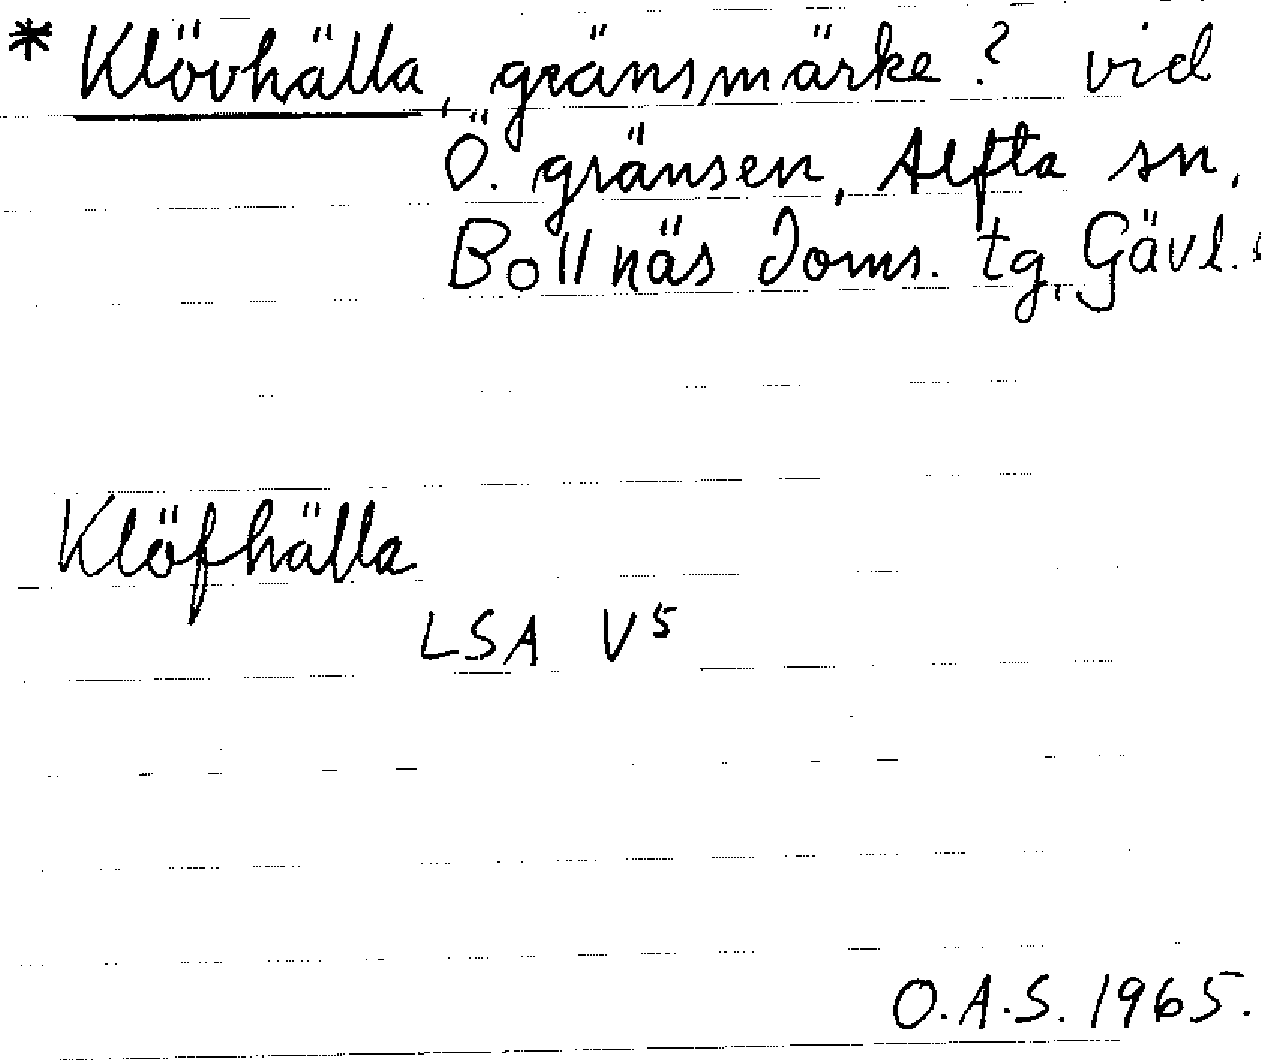 * Klövhälla, gränsmärke? vid
Ö. gränsen, Alfta sn,
Bollnäs doms. tg, Gävl.
Klöfhälla
LSA V5
O.A.S. 1965.